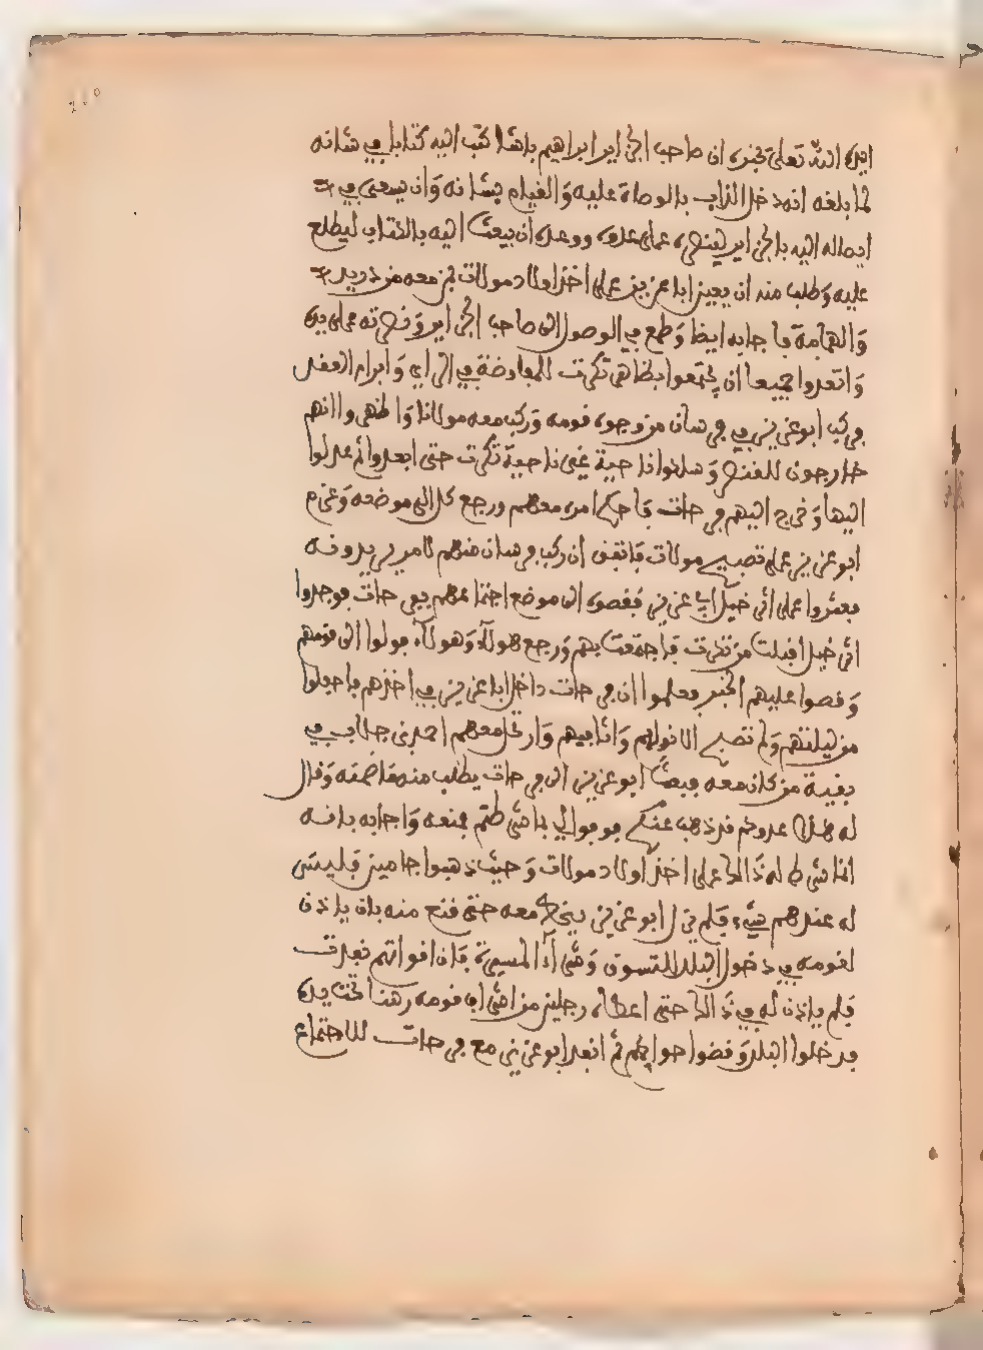 ايده الله تعلى بخبره ان صاحب الجزاير ابراهيم باشا كتب اليه كتابا في شانه
لما بلغه انه دخل الزاب بالوصاة عليه والقيام بشانه وان يسعى في
ايصاله اليه بالجزاير لينصره على عدوه ووعده ان يبعث اليه بالكتاب ليطلع
عليه وطلب منه ان يعين ابا عزيز على اخذ اولاد مولات بمن معه من دريد
والهمامة فاجابه ايضا وطمع في الوصول الى صاحب الجزاير ونصرته على يده
واتعدوا جميعا ان يجتمعوا بظاهر تكرت للمفاوضة في الراي وابرام العقد
فركب ابو عزيز في فرسان من وجوه قومه وركب معه مولانا واظهروا انهم
خارجون للقنص وسلكوا ناحية غير ناحية تكرت حتى ابعدوا ثم عدلوا
اليها وخرج اليهم فرحات فاحكم امره معهم ورجع كل الى موضعه وعزم
ابو عزيز على تصبيح مولات فاتفق ان ركب فرسان منهم لامر يريدونه
فعثروا على اثر خيل ابي عزيز فقصوه الى موضع اجتماعهم بفرحات فوجدوا
اثر خيل اقبلت من تكرت فاجتمعت بهم ورجع هولاء وهولاء فولوا الى قومهم
وقصوا عليهم الخبر فعلموا ان فرحات داخل ابا عزيز في اخذهم فاجفلوا
من ليلتهم ولم تصبح الا نولهم واثافيهم وارتحل معهم احمد بن جلاب في
بقية من كان معه فبعث ابو عزيز الى فرحات يطلب منه مقاضمته وقال
له هذا عدوكم قد ذهب عنكم فوفوا لي بما شرطتم فمنعه واجابه بانه
انما شرط له ذالك على اخذ اولاد مولات وحيث ذهبوا جامين فليس
له عندهم شيء فلم يزل ابو عزيز معه حتى قنع منه بان ياذن
لقومه في دخول البلد للتسوق وشراء المسيرة فان اقواتهم نفدت
فلم ياذن له في ذالك حتى اعطاه رجلين من اشراف قومه رهنا تحت يده
فدخلوا البلد وقضوا حوايجهم ثم اتعد ابو عزيز مع فرحات للاجتماع